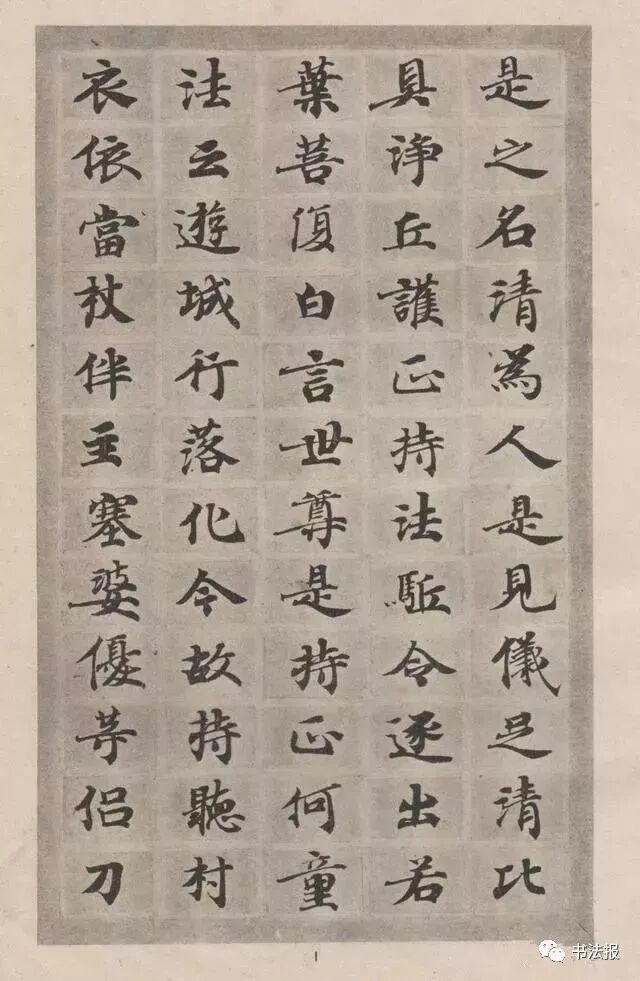 是之名清為人是見儀足清比
具諍丘護正持法駈令逐出若
葉菩復白言世尊是持正何童
法云遊城行落化令故持聽村
衣依當杖伴主塞婆優等侶刀
1
书法报